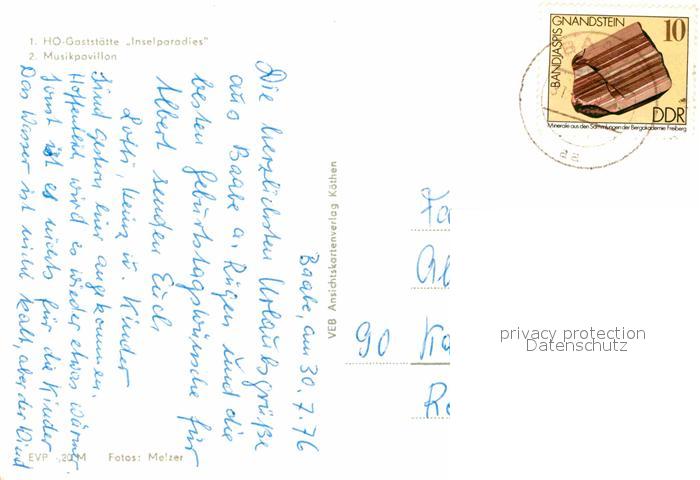 1. HO-Gaststätte „Inselparadies"
2. Musikpavillon
Baabe, am 30.7.76
Die herzlichsten Urlaubsgrüße
aus Baabe a. Rügen und die
besten Geburtstagswünsche für
Albert senden Euch
Lotti, Heinz u. Kinder
Sind gestern hier angekommen.
Hoffentlich wird es wieder etwas wärmer
sonst ist es nichts für die Kinder
Das Wasser ist nicht kalt, aber der Wind
EVP -,20 M Fotos: Melzer
VEB Ansichtskartenverlag Köthen
BANDJASPIS GNANDSTEIN
10
DDR
Minerale aus den Sammlungen der Bergakademie Freiberg
90
privacy protection
Datenschutz